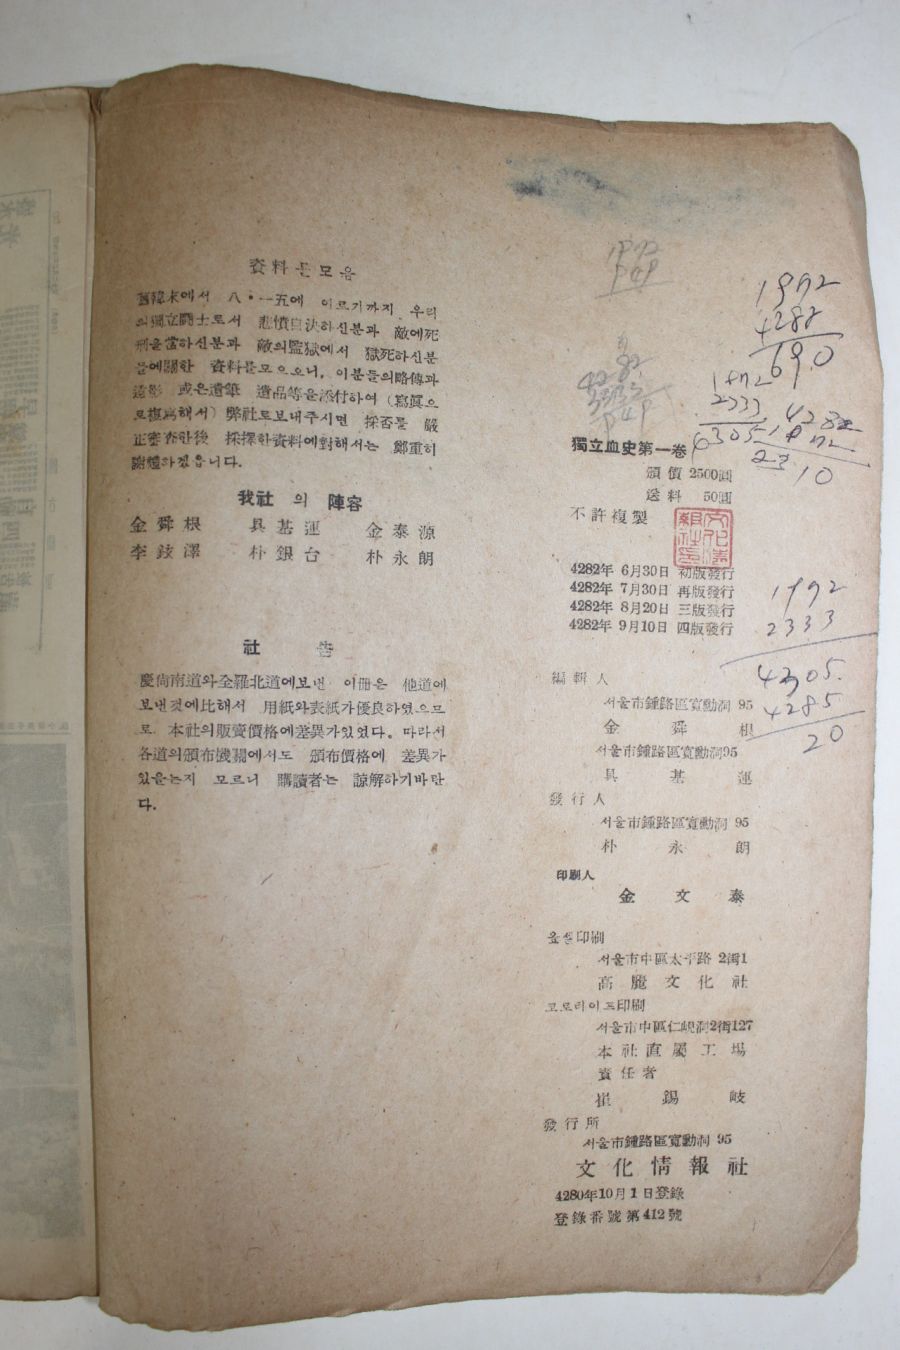 資料를모음
舊韓末에서 八·一五에 이르기까지 우리
의獨立鬪士로서 悲憤自決하신분과 敵에死
刑을當하신분과 敵의監獄에서 獄死하신분
들에關한 資料를모으오니, 이분들의略傳과
遺影 或은遺筆 遺品等을添付하여 (寫眞으
로複寫해서) 弊社로보내주시면 採否를 嚴
正審査한後 採擇한資料에對해서는 鄭重히
謝禮하겠읍니다.
我社의 陣容
金舜根 具基運 金泰源
李鉉澤 朴銀台 朴永朗
社告
慶尙南道와全羅北道에보낸 이冊은 他道에
보낸것에比해서 用紙와表紙가優良하였으므
로 本社의販賣價格에差異가있었다. 따라서
各道의頒布機關에서도 頒布價格에 差異가
있을는지 모르니 購讀者는 諒解하기바란
다.
1972
4282
690
1972
2333
4305
4282
1972
2310
獨立血史第一卷
頒價 2500圓
送料 50圓
不許複製
4282年 6月30日 初版發行
4282年 7月30日 再版發行
4282年 8月20日 三版發行
4282年 9月10日 四版發行
1972
2333
4305.
4285
20
編輯人
서울市鍾路區寬勳洞 95
金舜根
서울市鍾路區寬勳洞95
具基運
發行人
서울市鍾路區寬勳洞 95
朴永朗
印刷人
金文泰
옵셑印刷
서울市中區太平路 2街1
高麗文化社
코로타이프印刷
서울市中區仁峴洞2街127
本社直屬工場
責任者
崔錫岐
發行所
서울市鍾路區寬勳洞 95
文化情報社
4280年10月1日登錄
登錄番號第412號